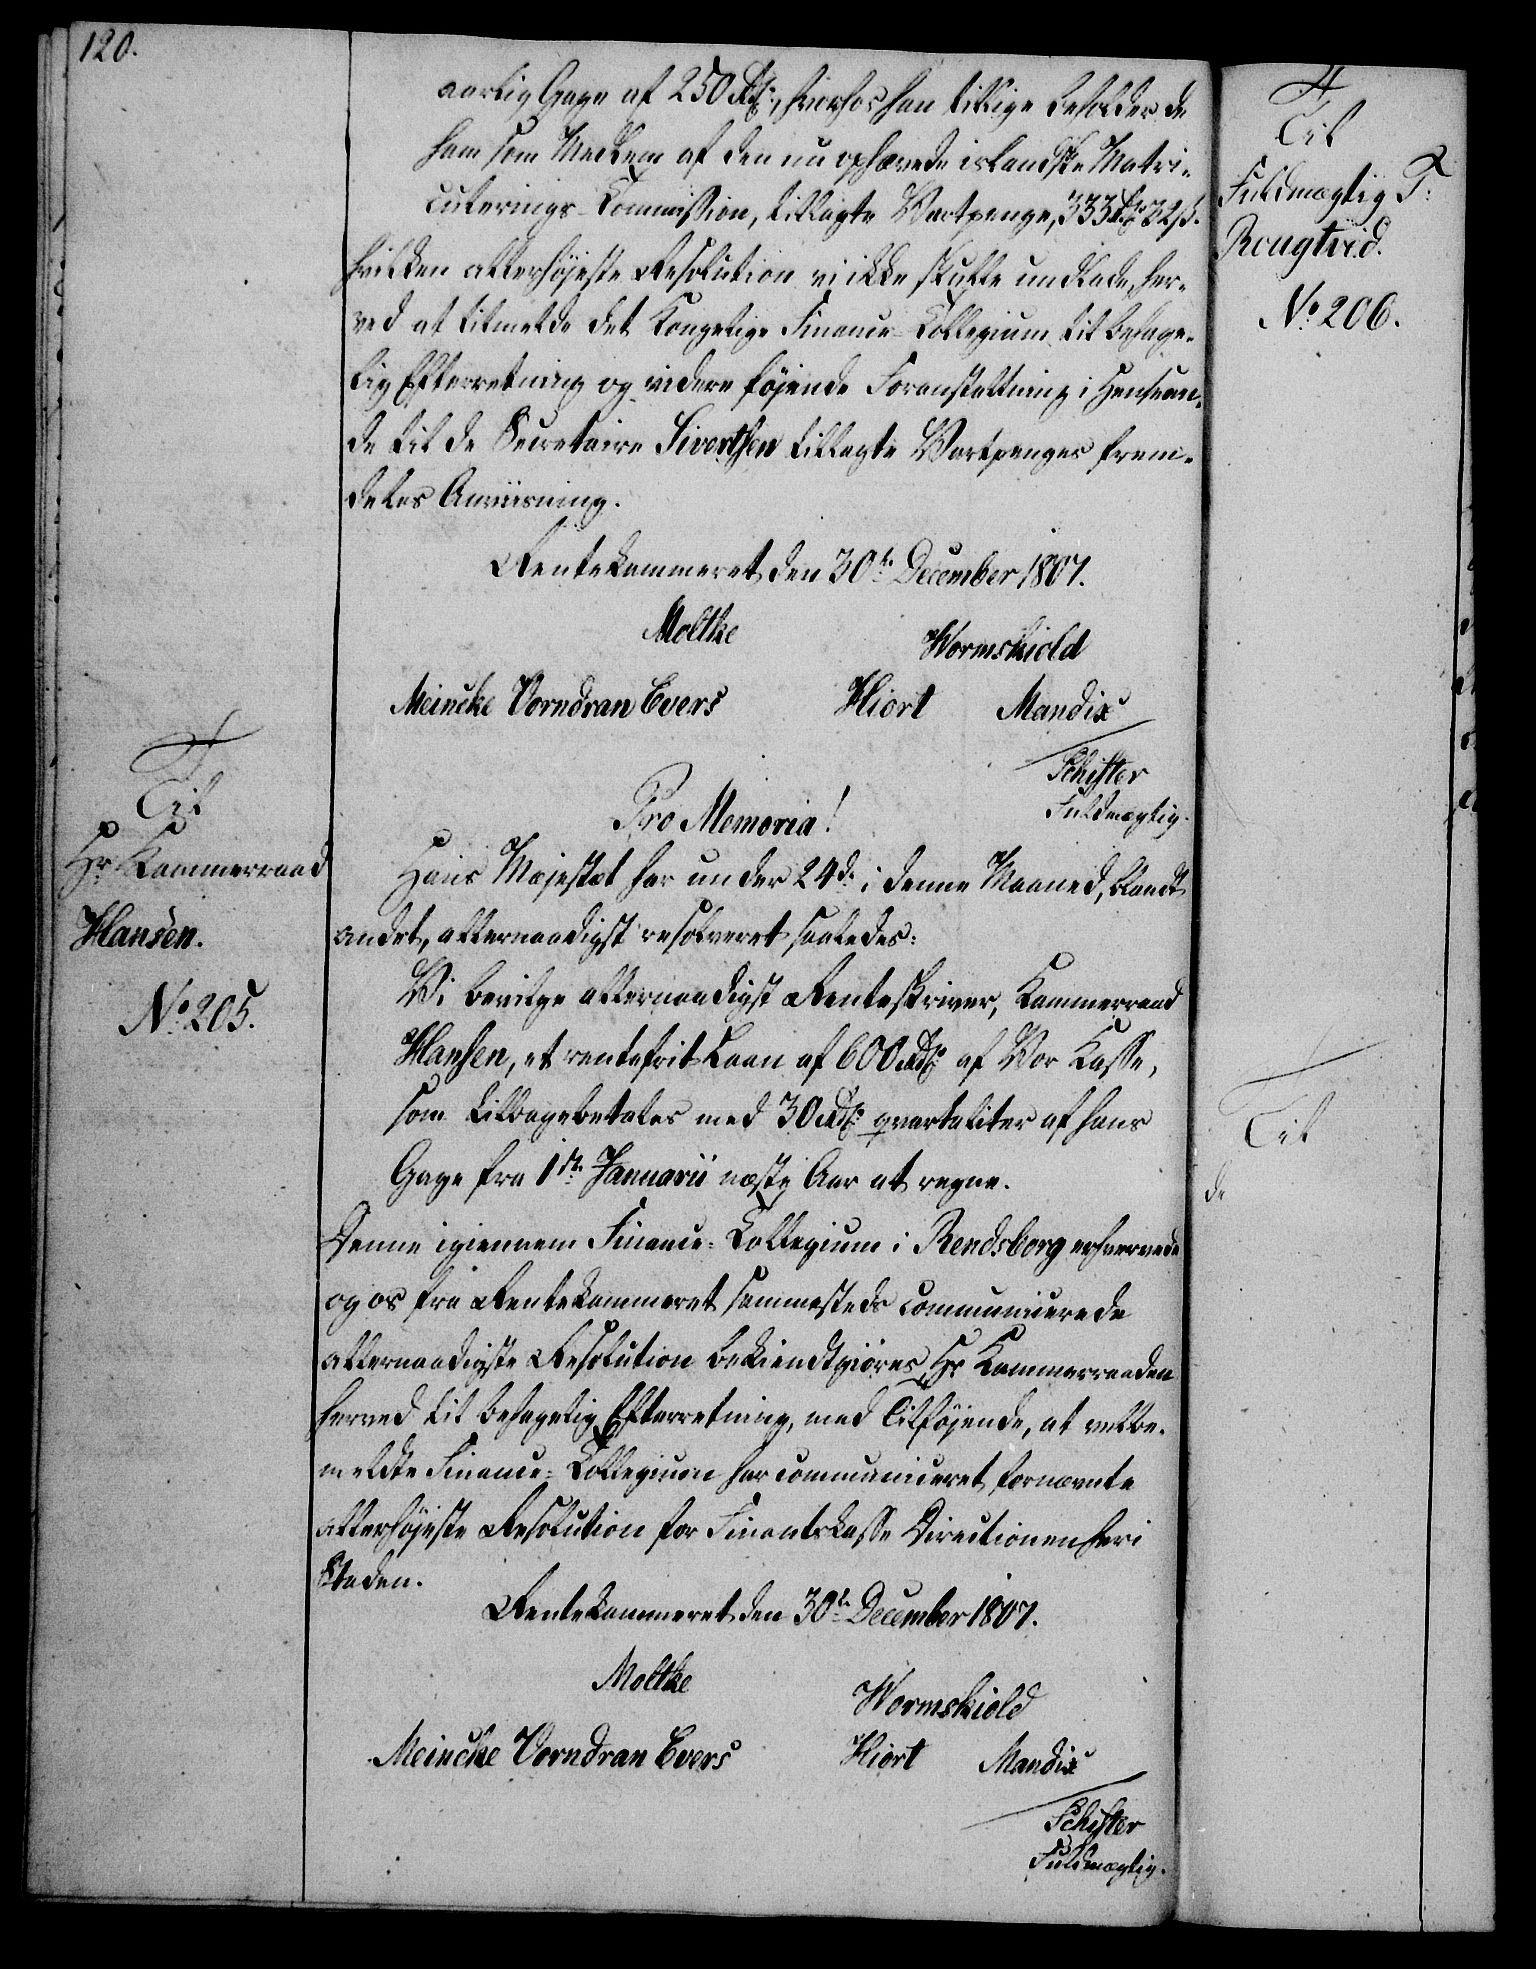 120.
aarlig Gage af 250 Rdr, hvorhos han tillige beholder de
ham som Medlem af den nu ophævede islandske Matri-
culerings-Commission, tillagte Vartpenge, 333 Rdr 32 s.
hvilken allerhøjeste Resolution vi ikke skulle undlade, her-
ved at tilmelde det Kongelige Finance-Collegium til behage-
lig Efterretning og videre føjende Foranstaltning i Henseen-
de til de Secretaire Siverthsen tillagte Vartpenges frem-
deles Anviisning.
Rentekammeret den 30te December 1807.
Moltke
Wormskiold
Meincke Vorndran Evers Hiort Mandix
Schifter
Fuldmægtig.
Til
Hr Kammerraad
Hansen.
No 205.
Pro Memoria!
Hans Majestæt har under 24de i denne Maaned, blandt
andet, allernaadigst resolveret saaledes:
Vi bevilge allernaadigst Renteskriver, Kammerraad
Hansen, et rentefrit Laan af 600 Rdr af Vor Kasse,
som tilbagebetales med 30 Rdr qvartaliter af hans
Gage fra 1ste Januarii næste Aar at regne.
Denne igiennem Finance-Collegium i Rendsborg erhvervede
og os fra Rentekammeret sammesteds communicerede
allernaadigste Resolution bekiendtgiøres Hr Kammerraaden
herved til behagelig Efterretning, med Tilføjende, at velbe-
meldte Finance-Collegium har communiceret fornævnte
allerhøjeste Resolution for Finantskasse Directionen her i
Staden.
Rentekammeret den 30te December 1807.
Moltke
Wormskiold
Meincke Vorndran Evers Hiort Mandix
Schifter
Fuldmægtig.
Til
Fuldmægtig T:
Rougtvid.
No 206.
Til
de